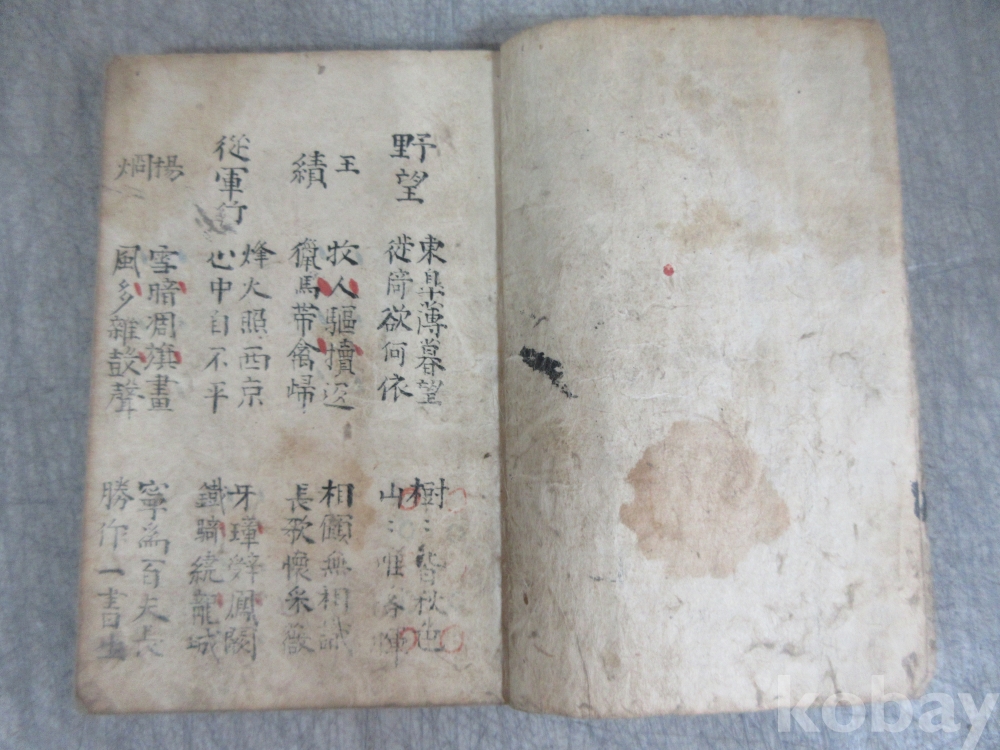 野望
東皐薄暮望
徙倚欲何依
樹：皆秋色
山：惟落暉
王績
牧人驅犢返
獵馬帶禽歸
相顧無相識
長歌懷采薇
從軍行
烽火照西京
心中自不平
牙璋辭鳳闕
鐵騎繞龍城
楊炯
雪暗凋旗畫
風多雜鼓聲
寧爲百夫長
勝作一書生
kobay